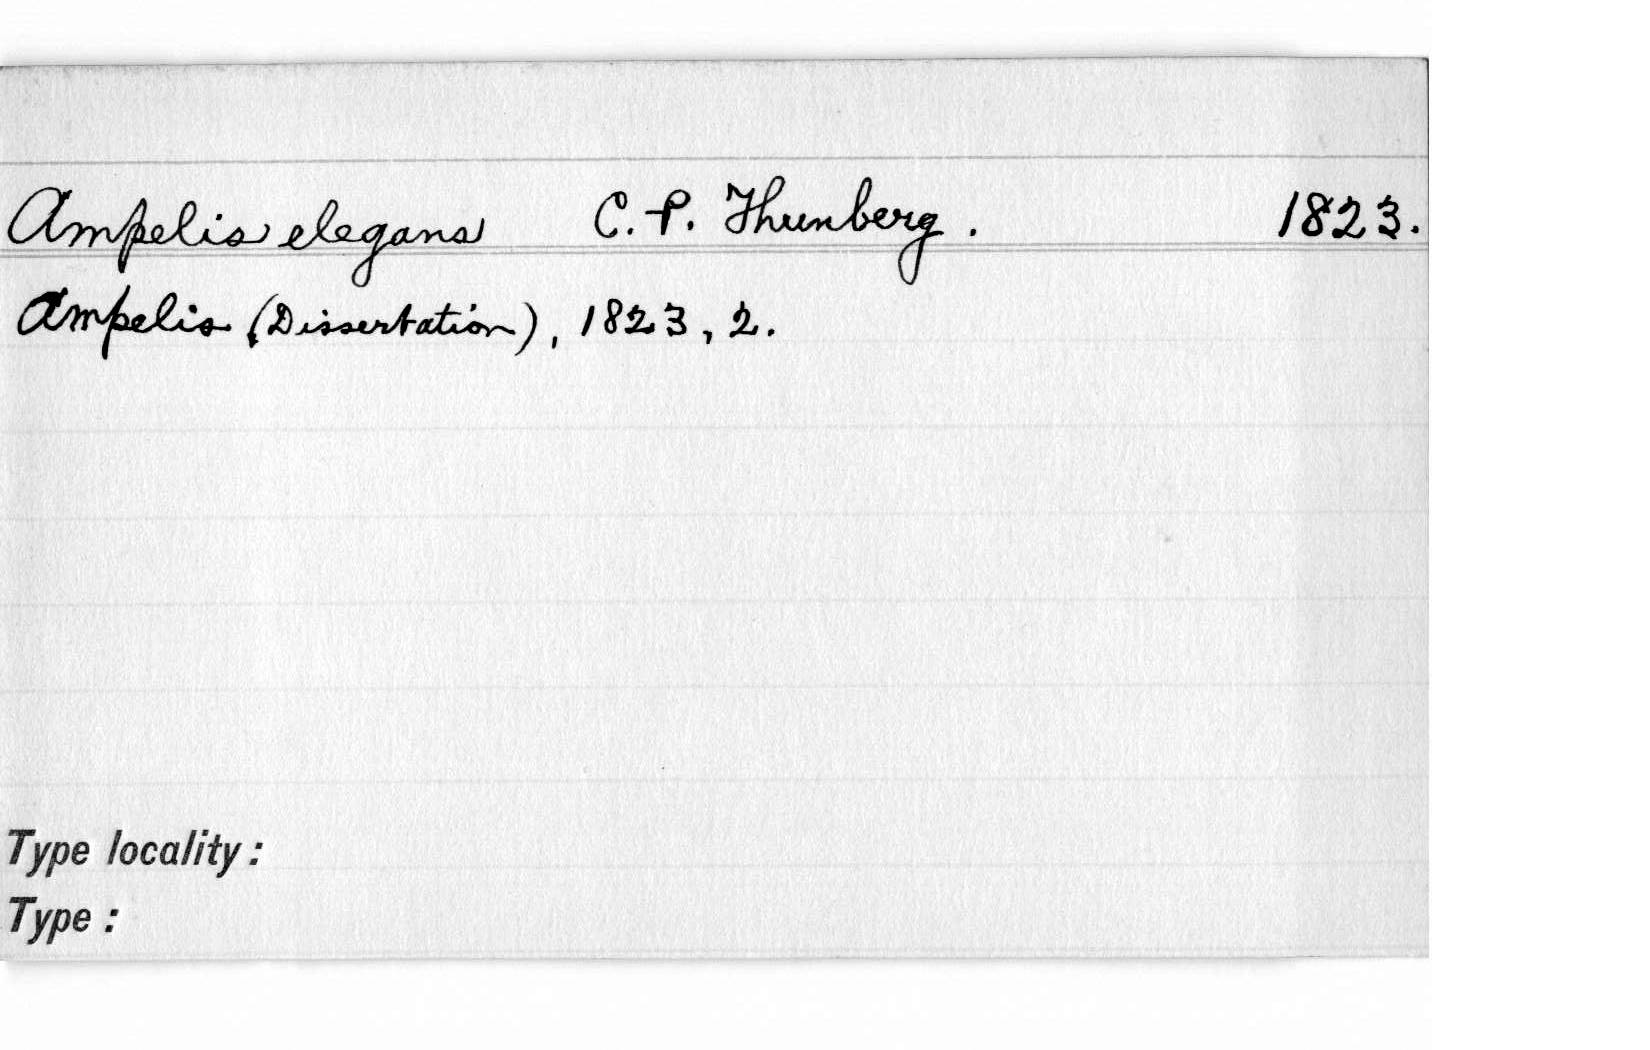 Ampelis elegans C. P. Thunberg. 1823.
Ampelis (Dissertation), 1823, 2.
Type locality:
Type: